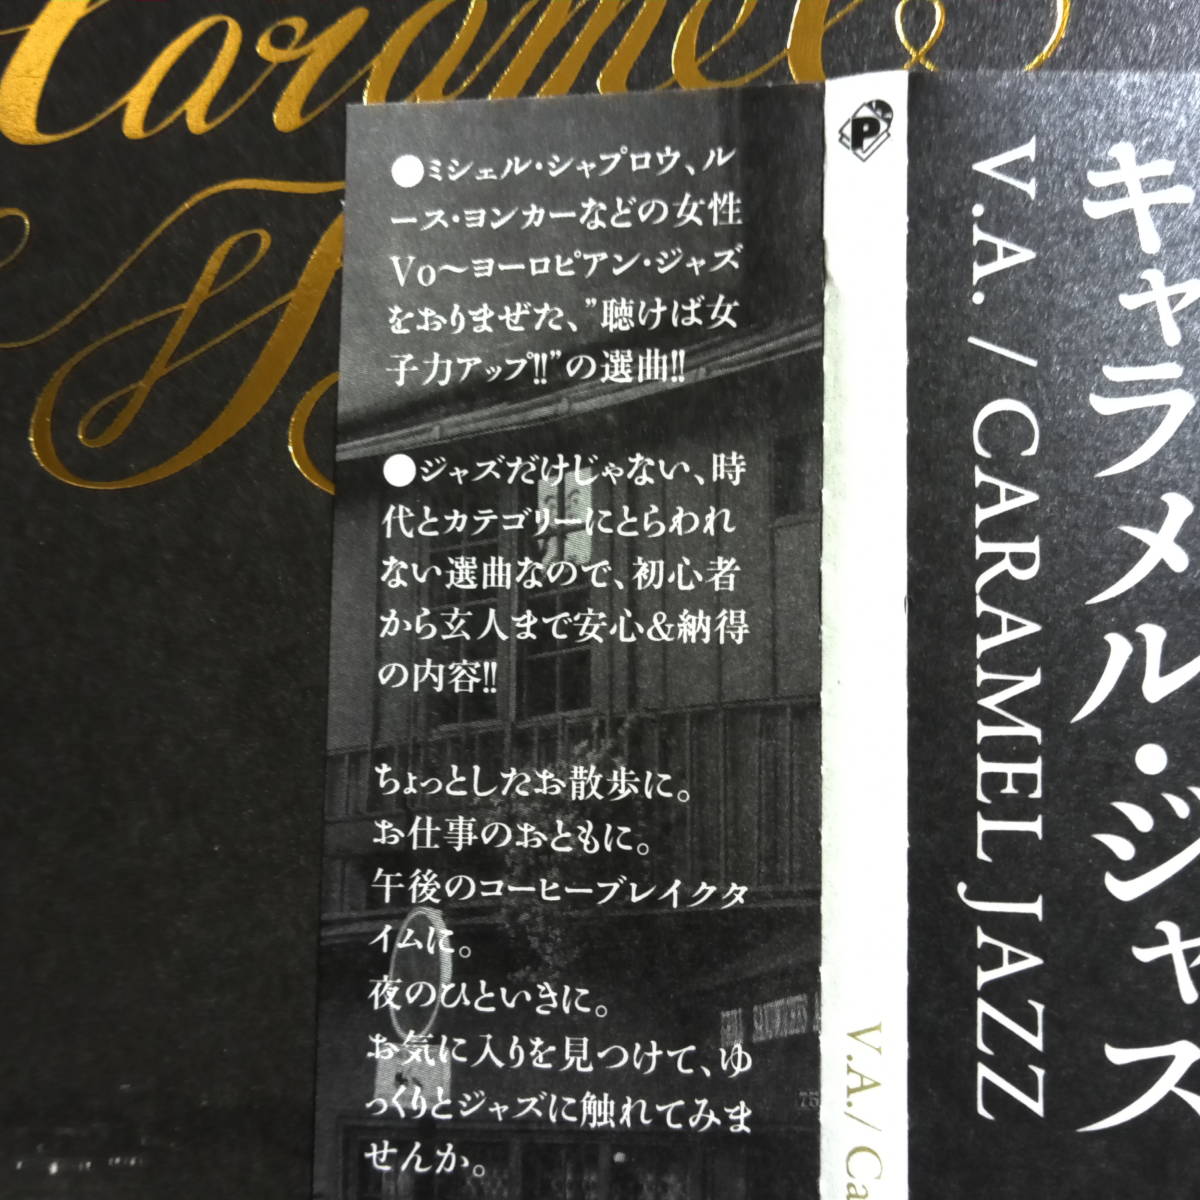 Caramel
●ミシェル・シャプロウ、ル
ース・ヨンカーなどの女性
Vo～ヨーロピアン・ジャズ
をおりまぜた、”聴けば女
子力アップ!!”の選曲!!
●ジャズだけじゃない、時
代とカテゴリーにとらわれ
ない選曲なので、初心者
から玄人まで安心&納得
の内容!!
ちょっとしたお散歩に。
お仕事のおともに。
午後のコーヒーブレイクタ
イムに。
夜のひといきに。
お気に入りを見つけて、ゆ
っくりとジャズに触れてみま
せんか。
P
V.A./ Ca
キャラメル・ジャズ
V.A. / CARAMEL JAZZ